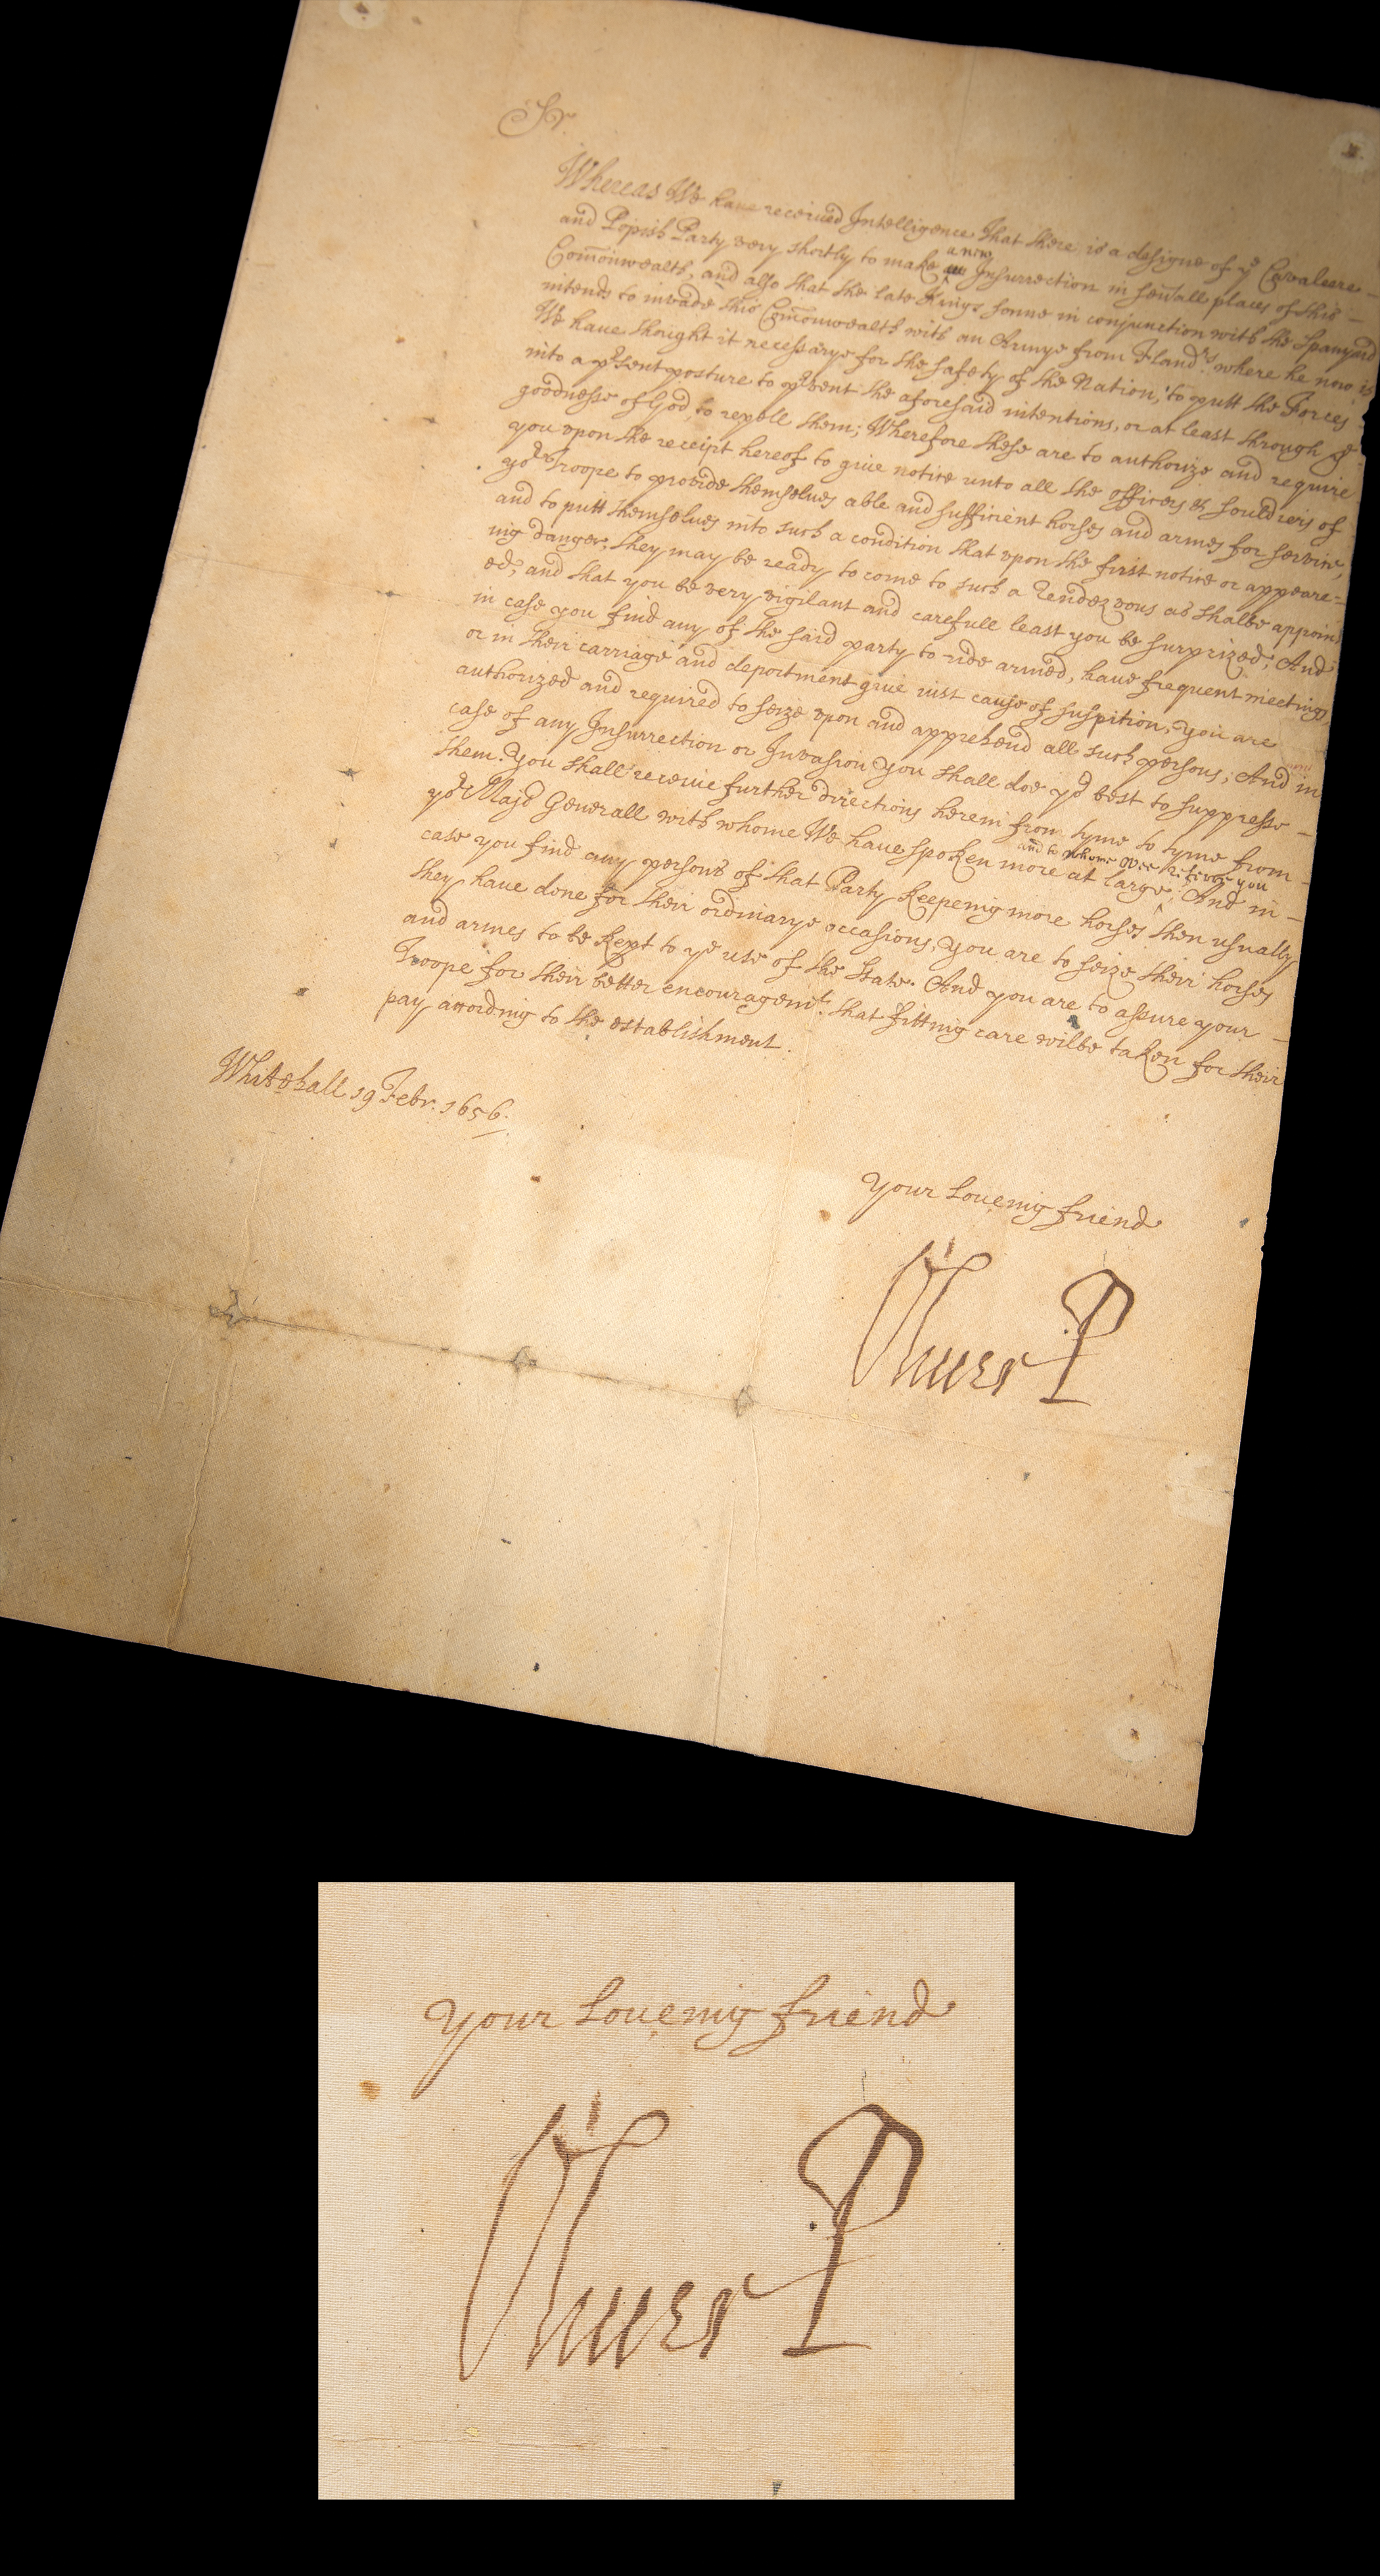 Sr
Whereas We have received Intelligence that there is a designe of ye Cavaleere
and Popish Party very shortly to make a new Insurrection in sevall places of this
Com̄onwealth, and also that the late Kings sonne in conjunction with the Spanyard
intends to invade this Com̄onwealth with an Armye from Flandrs where he now is
We have thought it necessarye for the safety of the Nation, to putt the Forces
into a prsent posture to prvent the aforesaid intentions, or at least through ye
goodnesse of God, to repell them; Wherefore these are to authorize and require
you vpon the receipt hereof to give notice unto all the officers & souldiers of
yor Troope to provide themselves able and sufficient horses and armes for service,
and to putt themselves into such a condition that vpon the first notice or appeare=
ing danger, they may be ready to come to such a rendezvous as shalbe appoint
ed, and that you be very vigilant and carefull least you be surprized; And
in case you find any of the said party to ride armed, have frequent meetings
or in their carriage and deportment give iust cause of suspition, you are
authorized and required to seize vpon and apprehend all such persons; And in
case of any Insurrection or Invasion you shall doe yor best to suppresse
them. You shall receive further directions herein from tyme to tyme from
yor Major Generall with whome We have spoken more at large, and to whome wee referre you And in
case you find any persons of that Party keepeing more horses then usually
they have done for their ordinarye occasions, you are to seize their horses
and armes to be kept to ye use of the State. And you are to assure your
Troope for their better encouragemt. that fitting care wilbe taken for their
pay according to the establishment.
Whitehall 19 Febr. 1656.
Your Loueing friend
Oliver P
Your Loueing friend
Oliver P